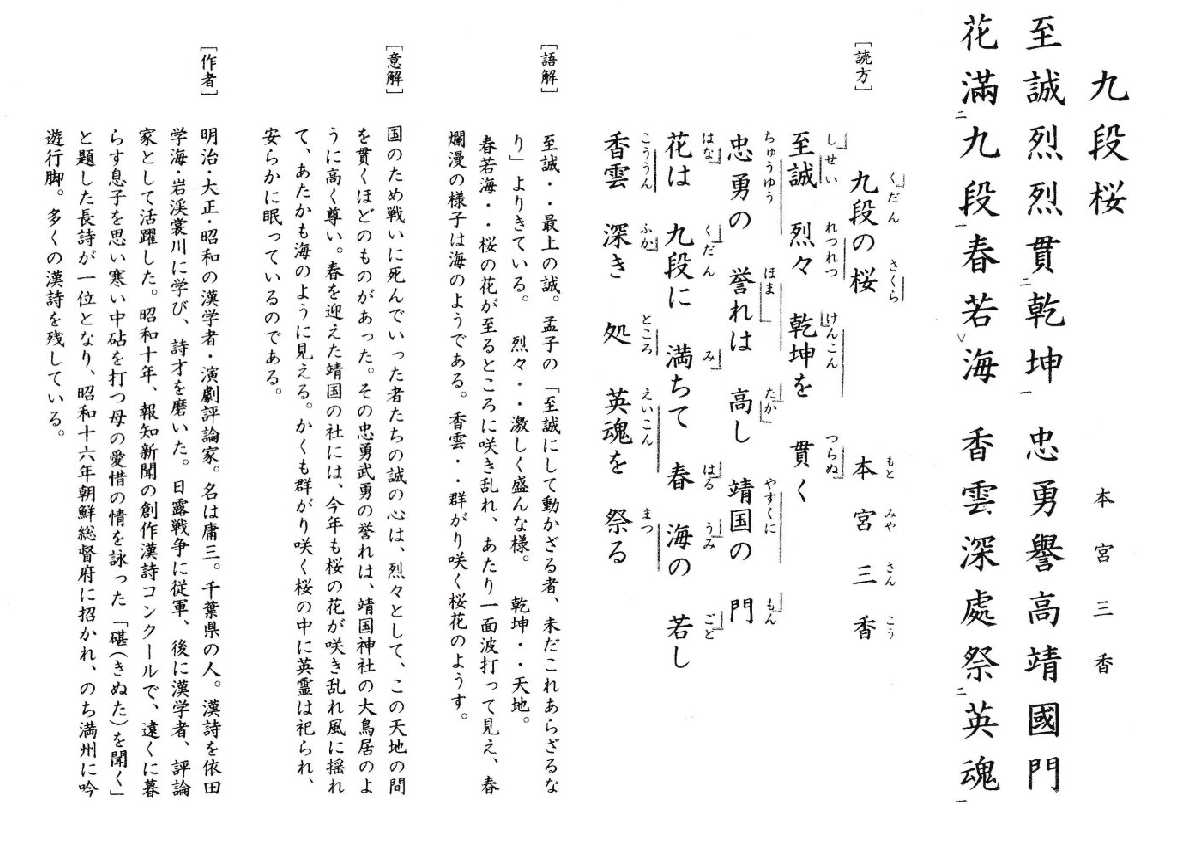 九段桜
本宮三香
至誠烈烈貫二乾坤一 忠勇譽高靖國門
花滿二九段一春若レ海 香雲深處祭二英魂一
[読方]
九段の桜 本宮三香
くだん さくら もと みや さん こう
至誠 烈々 乾坤を 貫く
しせい れつれつ けんこん つらぬ
忠勇の 誉れは 高し 靖国の 門
ちゅうゆう ほま たか やすくに もん
花は 九段に 満ちて 春 海の 若し
はな くだん み はる うみ ごと
香雲 深き 処 英魂を 祭る
こううん ふか ところ えいこん まつ
[語解]
至誠・・最上の誠。孟子の「至誠にして動かざる者、未だこれあらざるな
り」よりきている。 烈々・・激しく盛んな様。 乾坤・・天地。
春若海・・桜の花が至るところに咲き乱れ、あたり一面波打って見え、春
爛漫の様子は海のようである。香雲・・群がり咲く桜花のようす。
[意解]
国のため戦いに死んでいった者たちの誠の心は、烈々として、この天地の間
を貫くほどのものがあった。その忠勇武勇の誉れは、靖国神社の大鳥居のよ
うに高く尊い。春を迎えた靖国の社には、今年も桜の花が咲き乱れ風に揺れ
て、あたかも海のように見える。かくも群がり咲く桜の中に英霊は祀られ、
安らかに眠っているのである。
[作者]
明治・大正・昭和の漢学者・演劇評論家。名は庸三。千葉県の人。漢詩を依田
学海・岩渓裳川に学び、詩才を磨いた。日露戦争に従軍、後に漢学者、評論
家として活躍した。昭和十年、報知新聞の創作漢詩コンクールで、遠くに暮
らす息子を思い寒い中砧を打つ母の愛惜の情を詠った「碪(きぬた)を聞く」
と題した長詩が一位となり、昭和十六年朝鮮総督府に招かれ、のち満州に吟
遊行脚。多くの漢詩を残している。